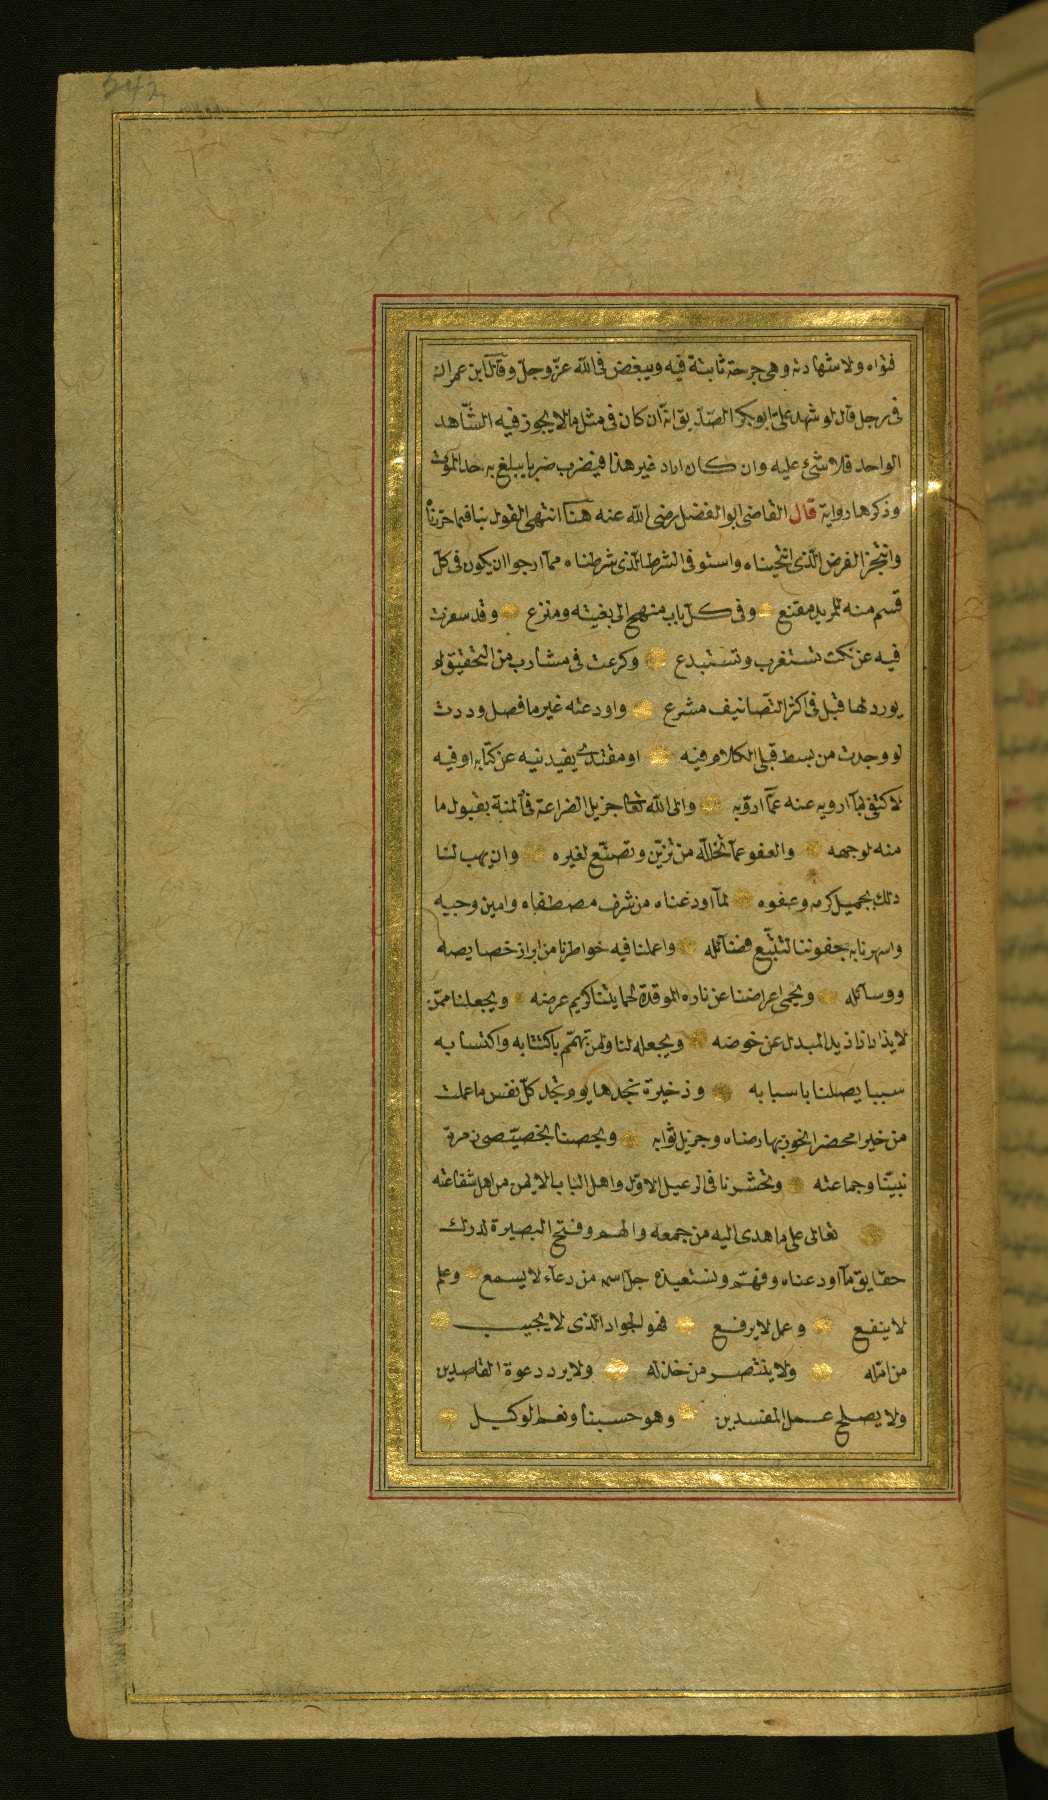 242
فتواه ولا شهادته وهي جرحة ثابتة فيه ويبغض في الله عزّ وجلّ وقال ابن عمران
في رجل قال لو شهد عليّ ابو بكر الصدّيق انه ان كان في مثل ما لا يجوز فيه الشّاهد
الواحد فلا شئ عليه وان كان اراد غير هذا فيضرب ضربا يبلغ به حد الموت
وذكرها رواية قال القاضي ابو الفضل رضي الله عنه هنا انتهى القول بنا فيما حرّرناه
وانتجز الغرض الّذي انتحيناه واستوفي الشرط الّذي شرطناه ممّا ارجوا ان يكون في كلّ
قسم منه للمريد مقنع وفي كلّ باب منهج الى بغيته ومنزع وقد سفرت
فيه عن نكت تستغرب وتستبدع وكرعت في مشارب من التحقيق لم
يورد لها قبل في اكثر التّصانيف مشرع واودعته غير ما فصل وددت
لو وجدت من بسط قبلي الكلام فيه او مقتدى يفيدنيه عن كتابه او فيه
لاكتفى بما ارويه عنه عمّا اروّيه والى الله تعالى جزيل الضراعة في المنة بقبول ما
منه لوجهه والعفو عمّا تخلّله من تزيّن وتصنّع لغيره وان يهب لنا
ذلك بجميل كرمه وعفوه لما اودعناه من شرف مصطفاه وامين وحيه
واسهرنا به جفوننا لتتبّع فضائله واعملنا فيه خواطرنا من ابراز خصايصه
ووسائله ويحمى اعراضنا عن ناره الموقدة لحمايتنا كريم عرضه ويجعلنا ممّن
لا يذاد اذا ذيد المبدل عن حوضه ويجعله لنا ولمن تهمّم باكتتابه واكتسابه
سببا يصلنا باسبابه وذخيرة نجدها يوم تجد كلّ نفس ما عملت
من خير محضرا نحوز بها رضاه وجزيل ثوابه ويخصنا بخصيّصى زمرة
نبيّنا وجماعته ويحشرنا في الرعيل الاوّل واهل الباب الايمن من اهل شفاعته
تعالى على ما هدى اليه من جمعه والهم وفتح البصيرة لدرك
حقايق ما اودعناه وفهّم ونستعيذه جلّ اسمه من دعاء لا يسمع وعلم
لا ينفع وعمل لا يرفع فهو الجواد الّذي لا يخيب
من امّله ولا ينتصر من خذله ولا يرد دعوة القاصدين
ولا يصلح عمل المفسدين وهو حسبنا ونعم الوكيل